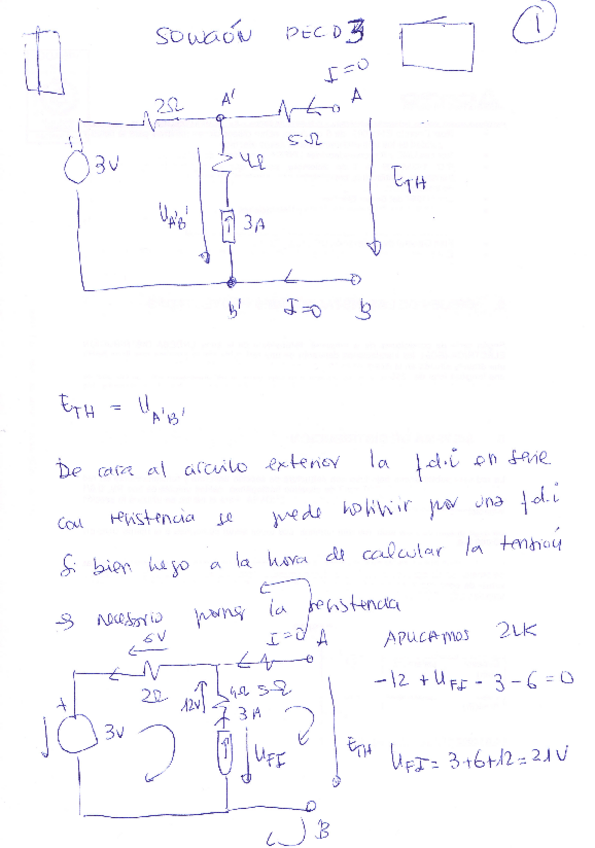 SOLUCIÓN PEC D3
1
I=0
2Ω
A'
A
5Ω
+
3V
4Ω
U_A'B'
3A
E_TH
B'
I=0
B
E_TH = U_A'B'
De cara al circuito exterior la f.d.i en serie
con resistencia se puede sustituir por una f.d.i
Si bien luego a la hora de calcular la tensión
es necesario poner la resistencia
6V
I=0
A
APLICAMOS 2LK
2Ω
12V
4Ω
5Ω
-12 + U_FI - 3 - 6 = 0
+
3V
3A
U_FI
E_TH
U_FI = 3+6+12 = 21V
B